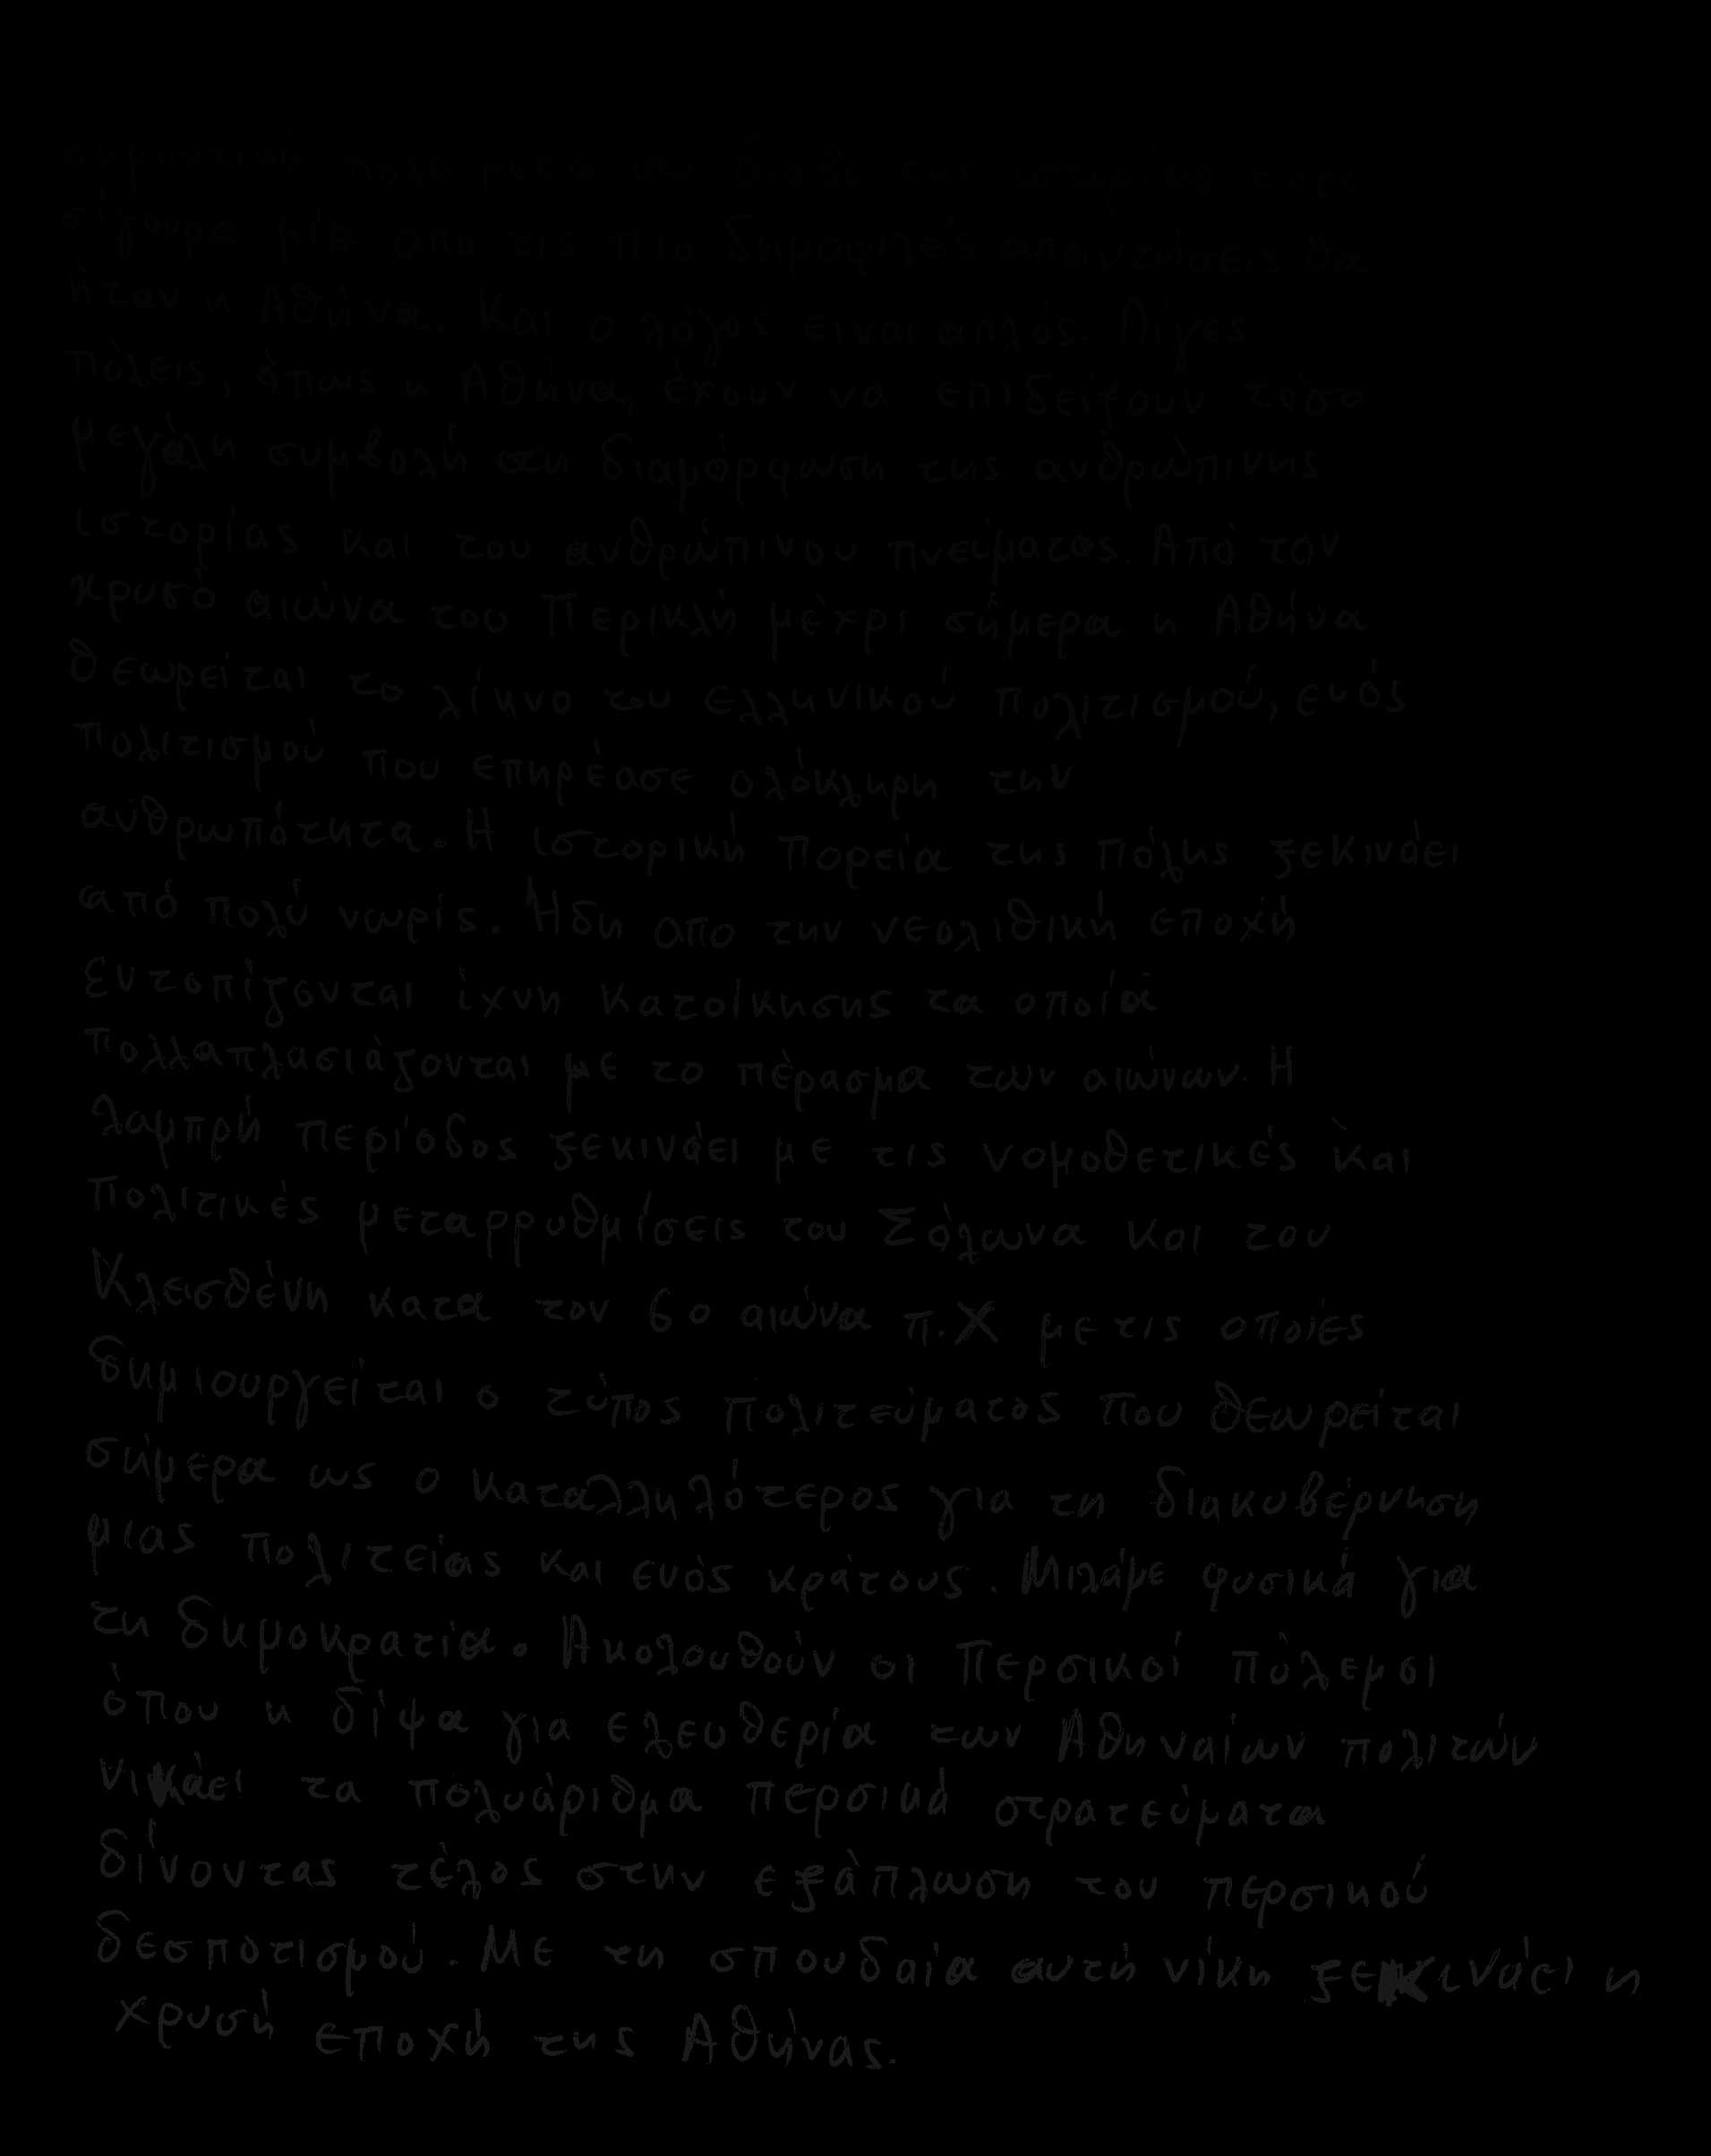 σημαντική πόλη μέσα στο διάβα της ιστορίας τότε
σίγουρα μία απο τις πιο δημοφιλείς απαντήσεις θα
ήταν η Αθήνα. Και ο λόγος είναι απλός. Λίγες
πόλεις, όπως η Αθήνα, έχουν να επιδείξουν τόσο
μεγάλη συμβολή στη διαμόρφωση της ανθρώπινης
ιστορίας και του ανθρώπινου πνεύματος. Από τον
χρυσό αιώνα του Περικλή μέχρι σήμερα η Αθήνα
θεωρείται το λίκνο του ελληνικού πολιτισμού, ενός
πολιτισμού που επηρέασε ολόκληρη την
ανθρωπότητα. Η ιστορική πορεία της πόλης ξεκινάει
από πολύ νωρίς. Ήδη απο την νεολιθική εποχή
εντοπίζονται ίχνη κατοίκησης τα οποία
πολλαπλασιάζονται με το πέρασμα των αιώνων. Η
λαμπρή περίοδος ξεκινάει με τις νομοθετικές και
πολιτικές μεταρρυθμίσεις του Σόλωνα και του
Κλεισθένη κατα τον 6ο αιώνα π.Χ με τις οποίες
δημιουργείται ο τύπος πολιτεύματος που θεωρείται
σήμερα ως ο καταλληλότερος για τη διακυβέρνηση
μιας πολιτείας και ενός κράτους. Μιλάμε φυσικά για
τη δημοκρατία. Ακολουθούν οι Περσικοί πόλεμοι
όπου η δίψα για ελευθερία των Αθηναίων πολιτών
νικάει τα πολυάριθμα περσικά στρατεύματα
δίνοντας τέλος στην εξάπλωση του περσικού
δεσποτισμού. Με τη σπουδαία αυτή νίκη ξεκινάει η
χρυσή εποχή της Αθήνας.